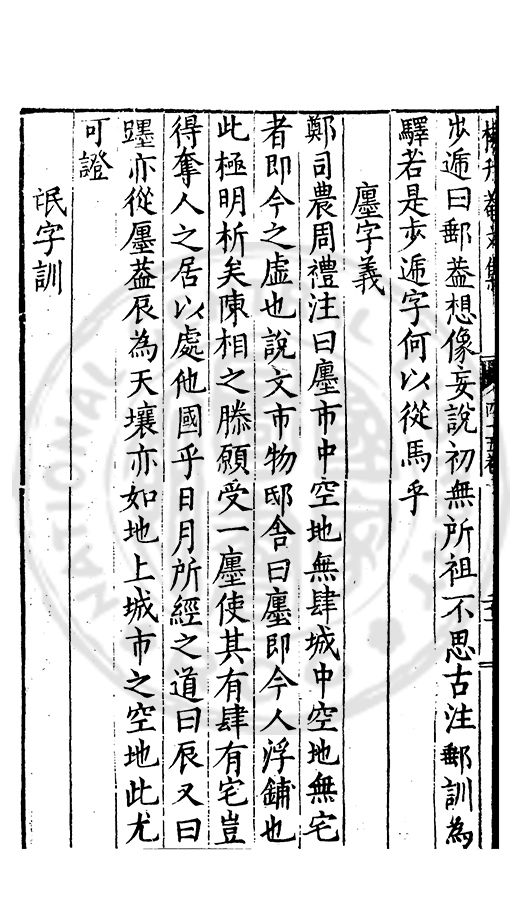 步遞曰郵葢想像妄說初無所祖不思古注郵訓為
驛若是步遞字何以從馬乎
廛字義
鄭司農周禮注曰廛市中空地無肆城中空地無宅
者即今之虛也說文市物邸舍曰廛即今人浮鋪也
此極明析矣陳相之滕願受一廛使其有肆有宅豈
得奪人之居以處他國乎日月所經之道曰辰又曰
躔亦從廛葢辰為天壤亦如地上城市之空地此尤
可證
氓字訓
NATIONAL